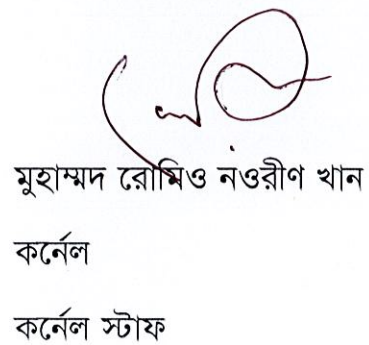 মুহাম্মদ রোমিও নওরীণ খান
কর্নেল
কর্নেল স্টাফ